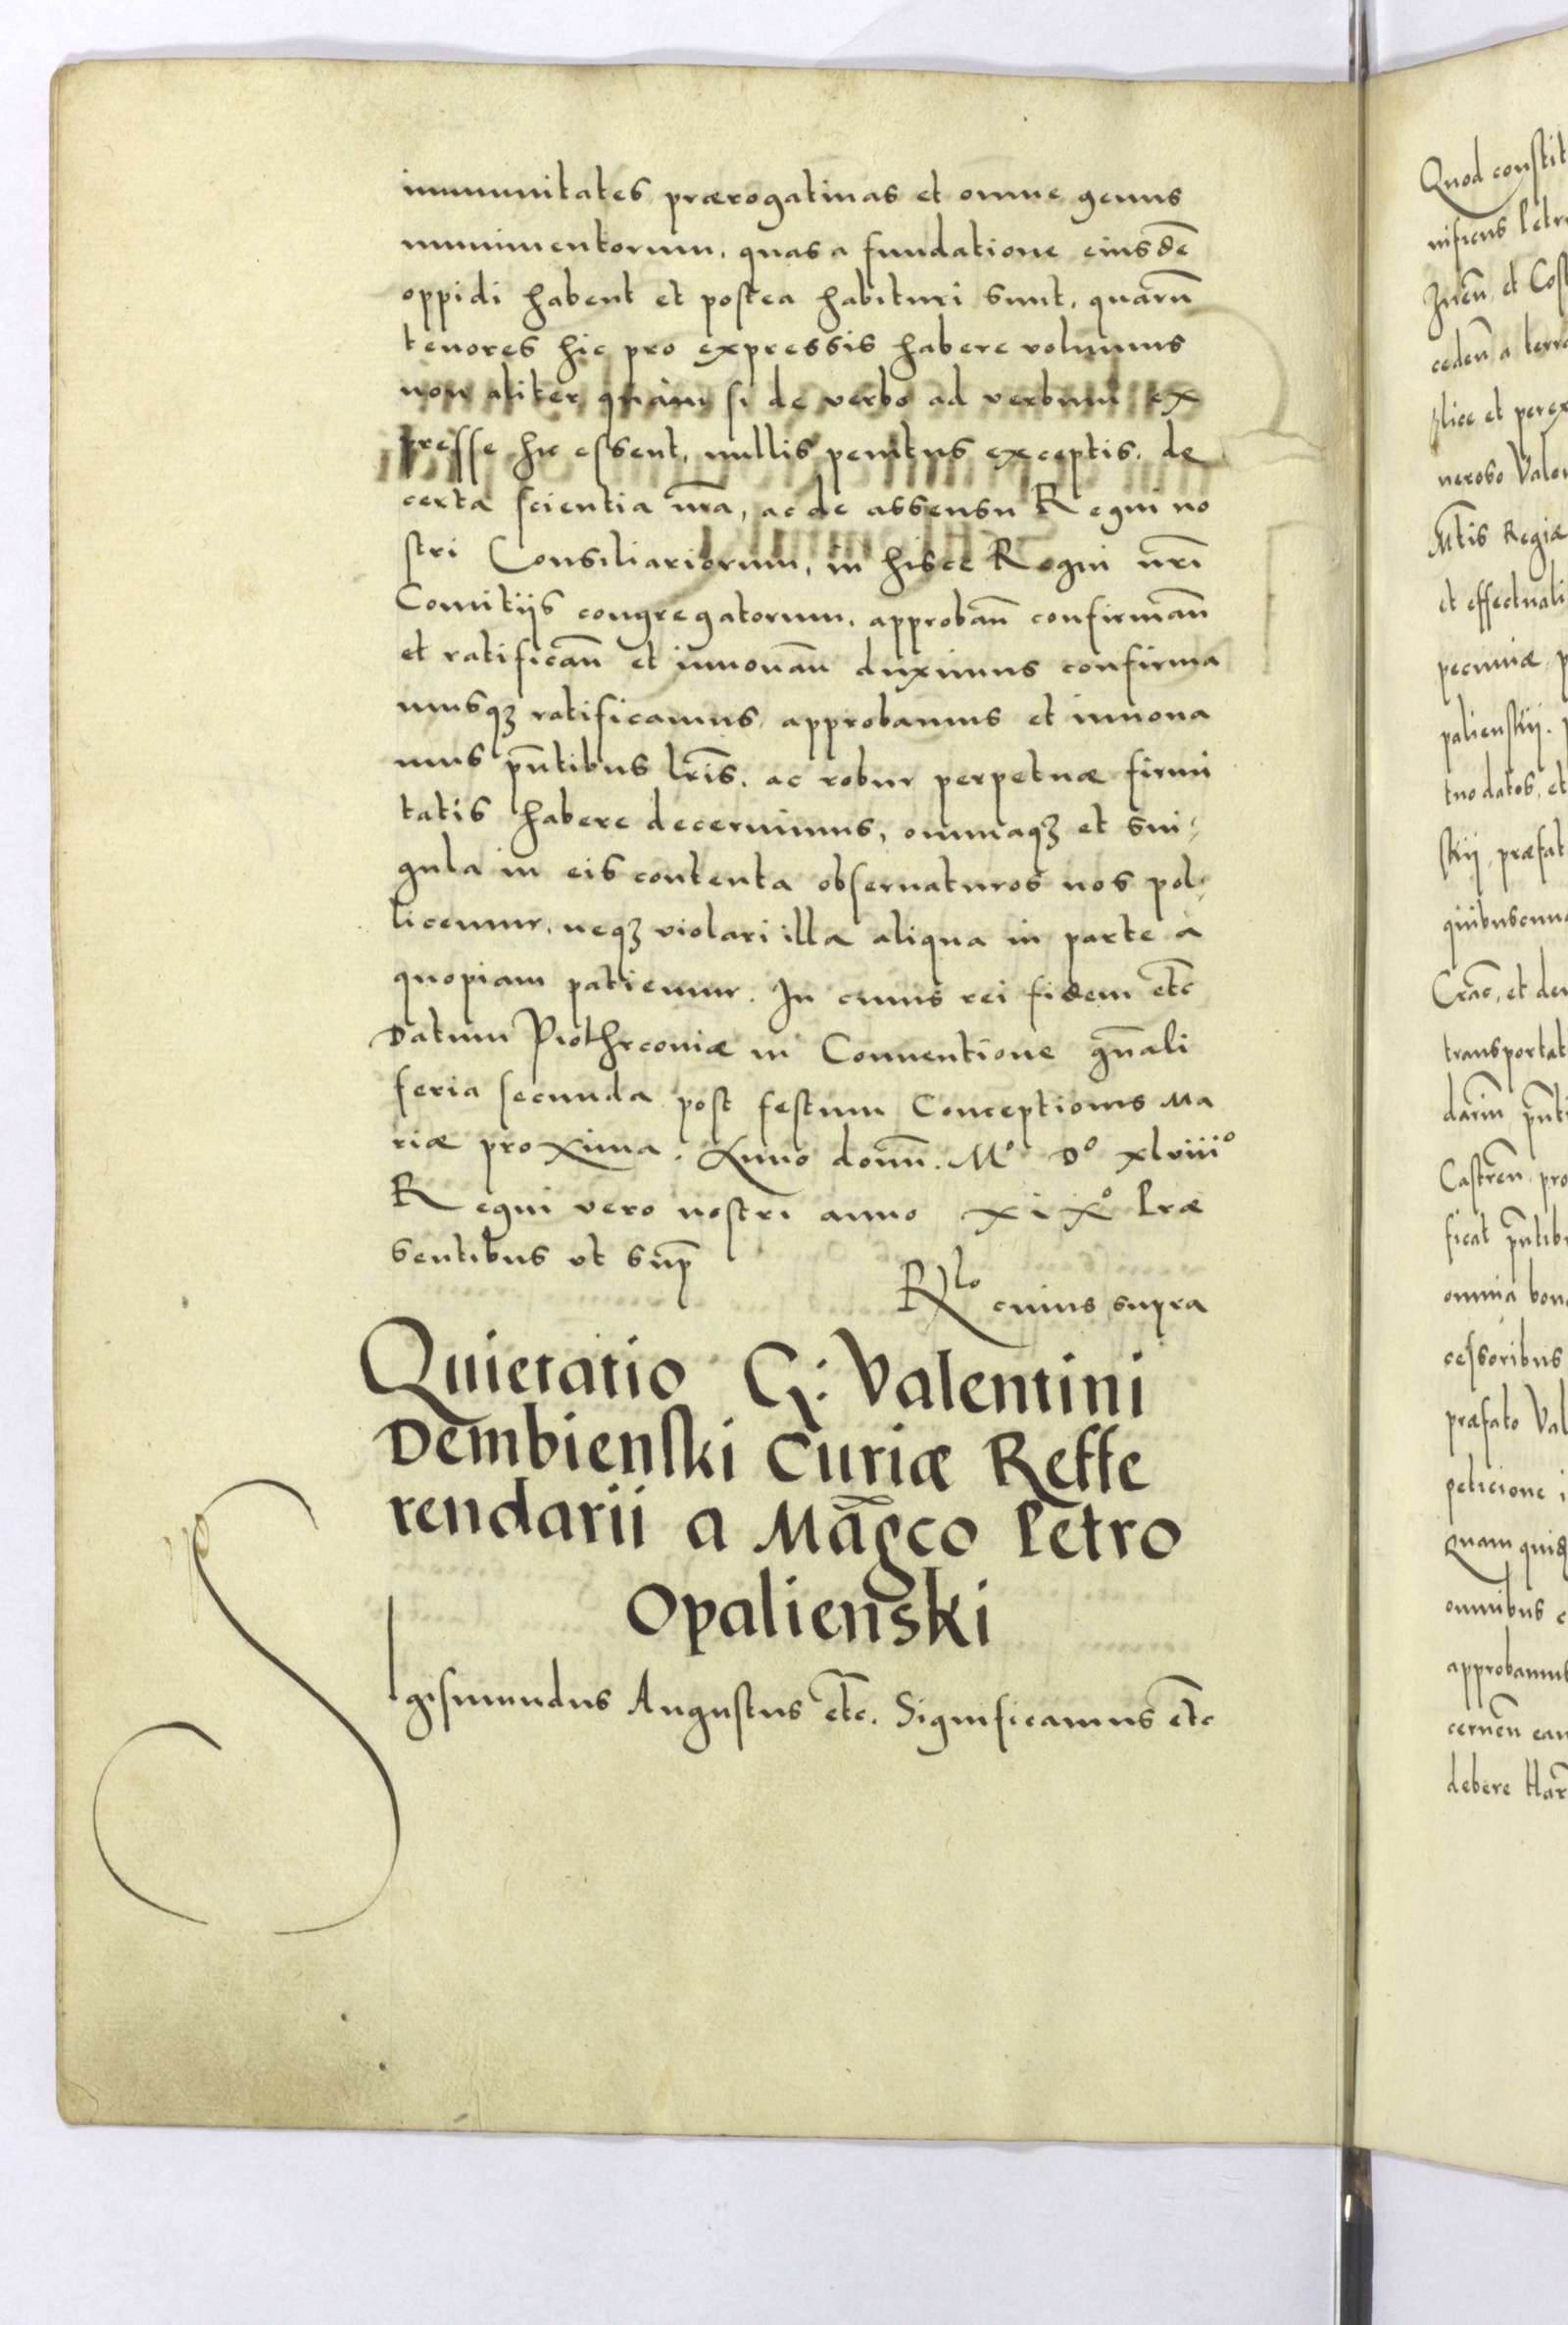 immunitates prærogatiuas et omne genus
munimentorum, quas a fundatione eiusdē
oppidi habent et postea habituri sunt, quarū
tenores hic pro expressis habere volumus
non aliter quàm si de verbo ad verbum ex
presse hic essent, nullis penitus exceptis, de
certa scientia nr̄a, ac de assensu Regni no
stri Consiliariorum, in hisce Regni nrī
Comitijs congregatorum, approbañ confirmañ
et ratificañ et innouañ duximus confirma
musqꝫ ratificamus approbamus et innoua
mus p̄ntibus lr̄is, ac robur perpetuæ firmi
tatis habere decernimus, omniaqꝫ et sin⸗
gula in eis contenta obseruaturos nos pol⸗
licemur, neqꝫ violari illa aliqua in parte a
quopiam patiemur. In cuius rei fidem etc̄
Datum Piothrcouiæ in Conuentione gn̄ali
feria secunda post festum Conceptionis Ma
riæ proxima. Anno domīn. Mº Dº xlviiiº
Regni vero nostri anno xixº Præ
sentibus vt sup̄
Rlo cuius supra
Quietatio G: Valentini
Dembienski Curiæ Reffe
rendarii a Māgco Petro
Opalienski
Sigismundus Augustus etc̄. Significamus etc̄
Quod constit
nificus Petr
et Cos
ceden̄ a terra
plice et perex
neroso Valen
Mtis Regiæ
et effectuali
pecuniæ p
palienskij.
tuo datos, et
skij, præfat
quibuscunq
Crac̄, et den
transportat
p̄nti
Castren̄ pro
ficat p̄ntibu
omnia bona
cessoribus
præfato Val
peticione i
Quam quid
omnibus c
approbamus
cernen̄ ean
debere Har